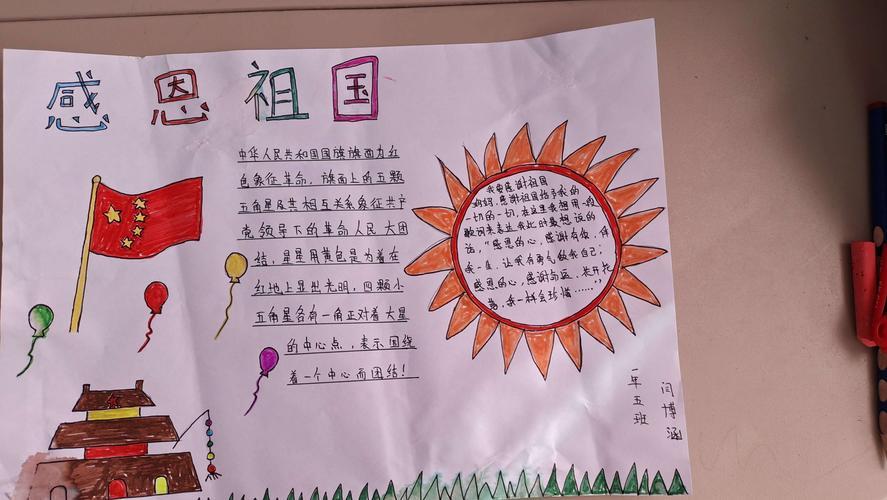 感恩祖国
中华人民共和国国旗旗面为红
色象征革命，旗面上的五颗
五角星及其相互关系象征共产
党领导下的革命人民大团
结，星星用黄色是为着在
红地上显出光明，四颗小
五角星各有一角正对着大星
的中心点，表示围绕
着一个中心而团结！
我要感谢祖国
妈妈，感谢祖国给予我的
一切的一切，在这里我想用一段
歌词来表达我此时最想说的
话，“感恩的心，感谢有你，伴
我一生，让我有勇气做我自己；
感恩的心，感谢命运，花开花
落，我一样会珍惜……”
一年五班
闫博涵